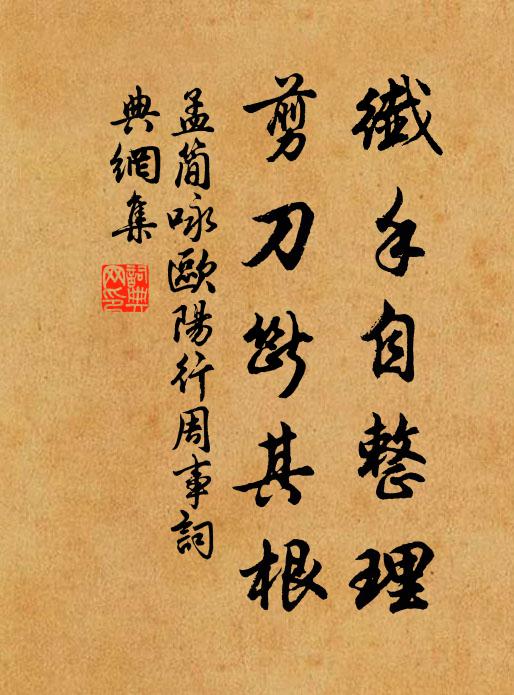 纖手自整理
剪刀斷其根
孟簡咏歐陽行周事詞
典網集
詞典
网印